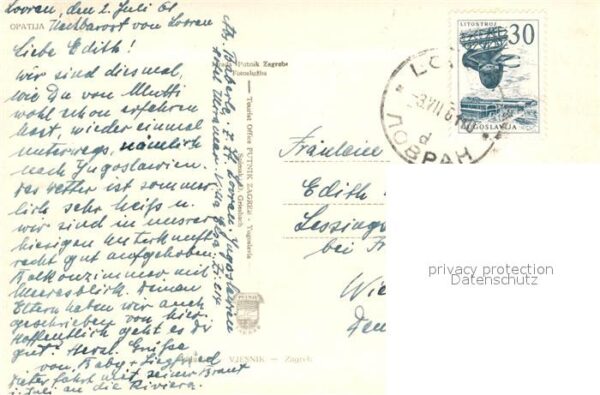 Lovran, den 2. Juli 61
OPATIJA Nachbarort von Lovran
Liebe Edith!
Wir sind diesmal,
wie Du von Mutti
wohl schon erfahren
hast, wieder einmal
unterwegs, nämlich
nach Jugoslawien.
Das Wetter ist sommer-
lich sehr heiß u.
wir sind in unserer
hiesigen Unterkunft
recht gut aufgehoben.
Balkonzimmer mit
Meeresblick. Deinen
Eltern haben wir auch
geschrieben von hier.
Hoffentlich geht es Dir
gut. Herzl. Grüße
von Baby + Siegfried
Dieter fährt mit seiner Braut
Juli an die Riviera.
z. Zt. Lovran. Jugoslawien
Putnik Zagreb
Fotoslužba
Tourist Office PUTNIK ZAGREB - Yugoslavia
PUTNIK
ZAGREB
VJESNIK — Zagreb
LITOSTROJ
30
JUGOSLAVIJA
LO
-3.VII.61
d
ЛОВРАН
Fräulein
Edith
Lessing
bei F
Wie
Den
privacy protection
Datenschutz